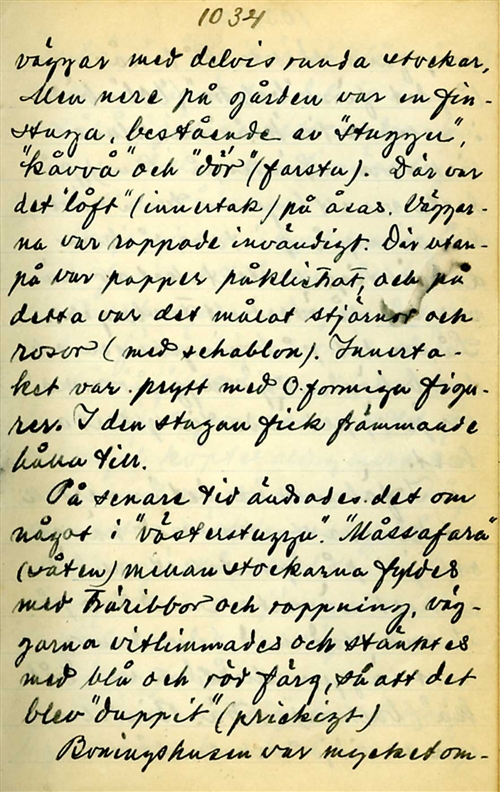 1034
väggar med delvis runda stockar.
Men nere på gården var en fin-
stuga, bestående av "stuggu",
"kåvvå" och "dör" (farstu). Där var
det "löft" (innertak) på åsas. Väggar-
na var rappade invändigt. Där utan-
på var papper påklistrat, och på
detta var det målat stjärnor och
rosor (med schablon). Innerta-
ket var prytt med O-formiga figu-
rer. I den stugan fick främmande
hålla till.
På senare tid ändrades det om
något i "västerstuggu". "Måssafara"
(såten) mellan stockarna fyldes
med träribbor och rappning, väg-
garna vitlimmades och stänktes
med blå och röd färg, så att det
blev "duppit" (prickigt)
Boningshusen var mycket om-